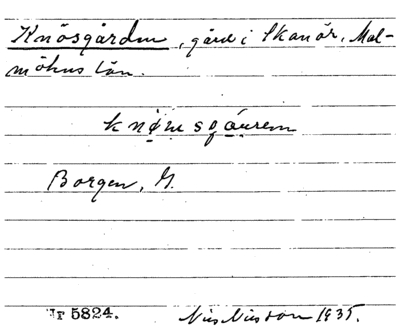 Knösgården, gård i Skanör, Mal-
möhus län.
Borgen, G.
Nr 5824. Nils Nilsson 1935.